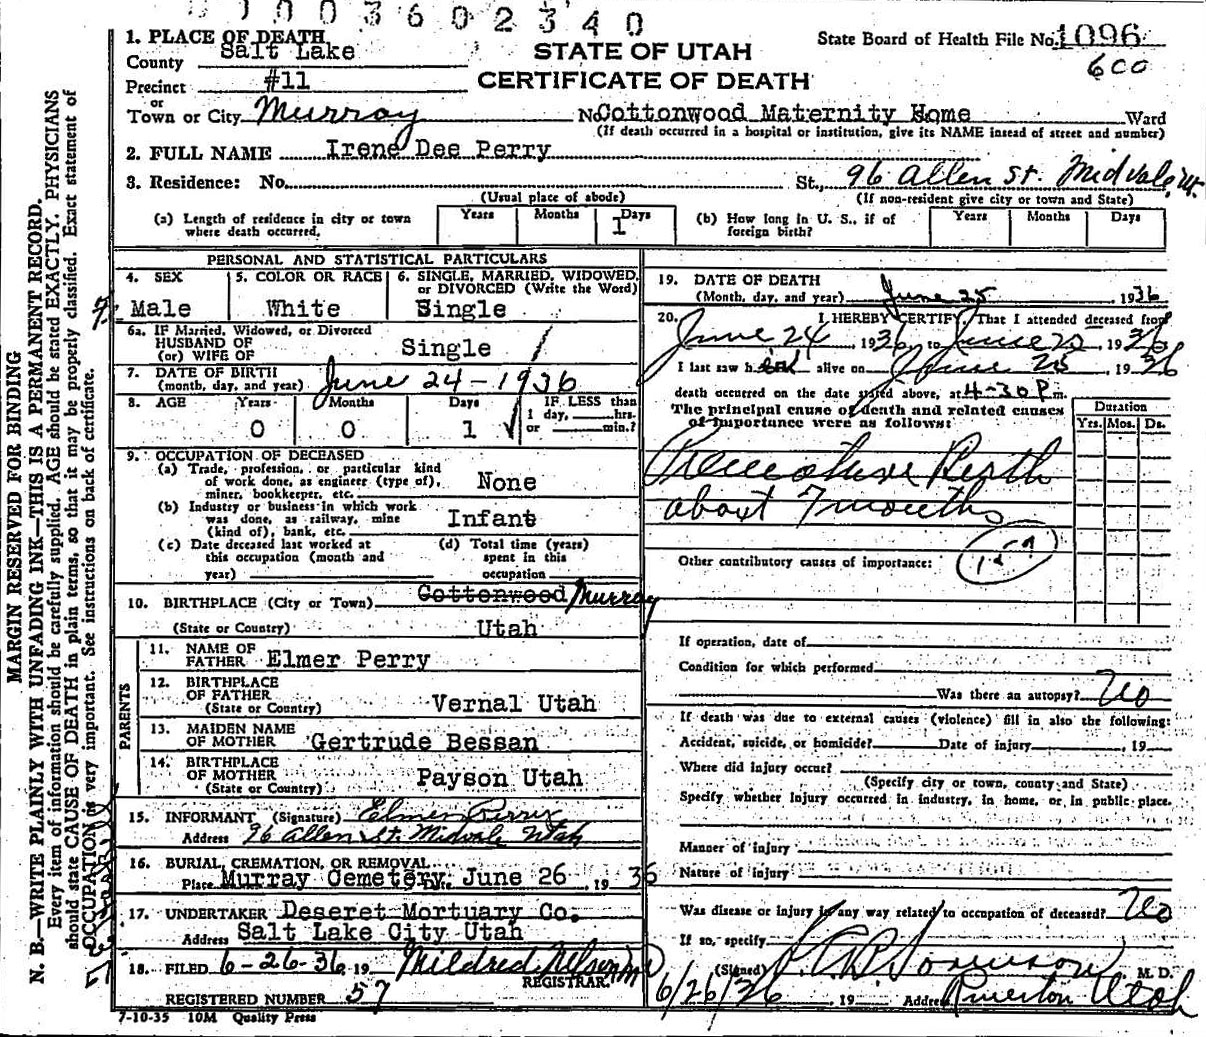 1003602340
1. PLACE OF DEATH
County Salt Lake
Precinct #11
or
Town or City Murray
STATE OF UTAH
CERTIFICATE OF DEATH
State Board of Health File No. 1096
600
No. Cottonwood Maternity Home Ward
(If death occurred in a hospital or institution, give its NAME insead of street and number)
2. FULL NAME Irene Dee Perry
3. Residence: No. St., 96 Allen St. Midvale, Ut.
(Usual place of abode) (If non-resident give city or town and State)
(a) Length of residence in city or town where death occurred. Years Months Days 1
(b) How long in U. S., if of foreign birth? Years Months Days
PERSONAL AND STATISTICAL PARTICULARS
4. SEX Male
5. COLOR OR RACE White
6. SINGLE, MARRIED, WIDOWED, or DIVORCED (Write the Word) Single
6a. IF Married, Widowed, or Divorced
HUSBAND OF
(or) WIFE OF Single
7. DATE OF BIRTH
(month, day, and year) June 24-1936
8. AGE Years 0 Months 0 Days 1
IF LESS than
1 day, hrs.
or min.?
9. OCCUPATION OF DECEASED
(a) Trade, profession, or particular kind
of work done, as engineer (type of),
miner, bookkeeper, etc. None
(b) Industry or business in which work
was done, as railway, mine
(kind of), bank, etc. Infant
(c) Date deceased last worked at
this occupation (month and
year)
(d) Total time (years)
spent in this
occupation
10. BIRTHPLACE (City or Town) Cottonwood Murray
(State or Country) Utah
PARENTS
11. NAME OF
FATHER Elmer Perry
12. BIRTHPLACE
OF FATHER
(State or Country) Vernal Utah
13. MAIDEN NAME
OF MOTHER Gertrude Bessan
14. BIRTHPLACE
OF MOTHER
(State or Country) Payson Utah
15. INFORMANT (Signature) Elmer Perry
Address 96 Allen St. Midvale Utah
16. BURIAL, CREMATION, OR REMOVAL
Place Murray Cemetery Date June 26, 1936
17. UNDERTAKER Deseret Mortuary Co.
Address Salt Lake City Utah
18. FILED 6-26-36 19 Mildred Nelson
REGISTRAR.
REGISTERED NUMBER 57
7-10-35 10M Quality Press
19. DATE OF DEATH
(Month, day, and year) June 25, 1936
20. I HEREBY CERTIFY, That I attended deceased from
June 24, 1936, to June 25, 1936
I last saw h alive on June 25, 1936
death occurred on the date stated above, at 4-30 P.m.
The principal cause of death and related causes
of importance were as follows:
Duration
Yrs. Mos. Ds.
Premature Birth
about 7 months
159
Other contributory causes of importance:
If operation, date of
Condition for which performed
Was there an autopsy? No
If death was due to external causes (violence) fill in also the following:
Accident, suicide, or homicide? Date of injury, 19
Where did injury occur?
(Specify city or town, county and State)
Specify whether injury occurred in industry, in home, or in public place.
Manner of injury
Nature of injury
Was disease or injury in any way related to occupation of deceased? No
If so, specify
(Signed) Sorenson M. D.
6/26/36, 19 Address Riverton Utah
MARGIN RESERVED FOR BINDING
N. B.—WRITE PLAINLY WITH UNFADING INK—THIS IS A PERMANENT RECORD.
Every item of information should be carefully supplied. AGE should be stated EXACTLY. PHYSICIANS
should state CAUSE OF DEATH in plain terms, so that it may be properly classified. Exact statement of
OCCUPATION is very important. See instructions on back of certificate.